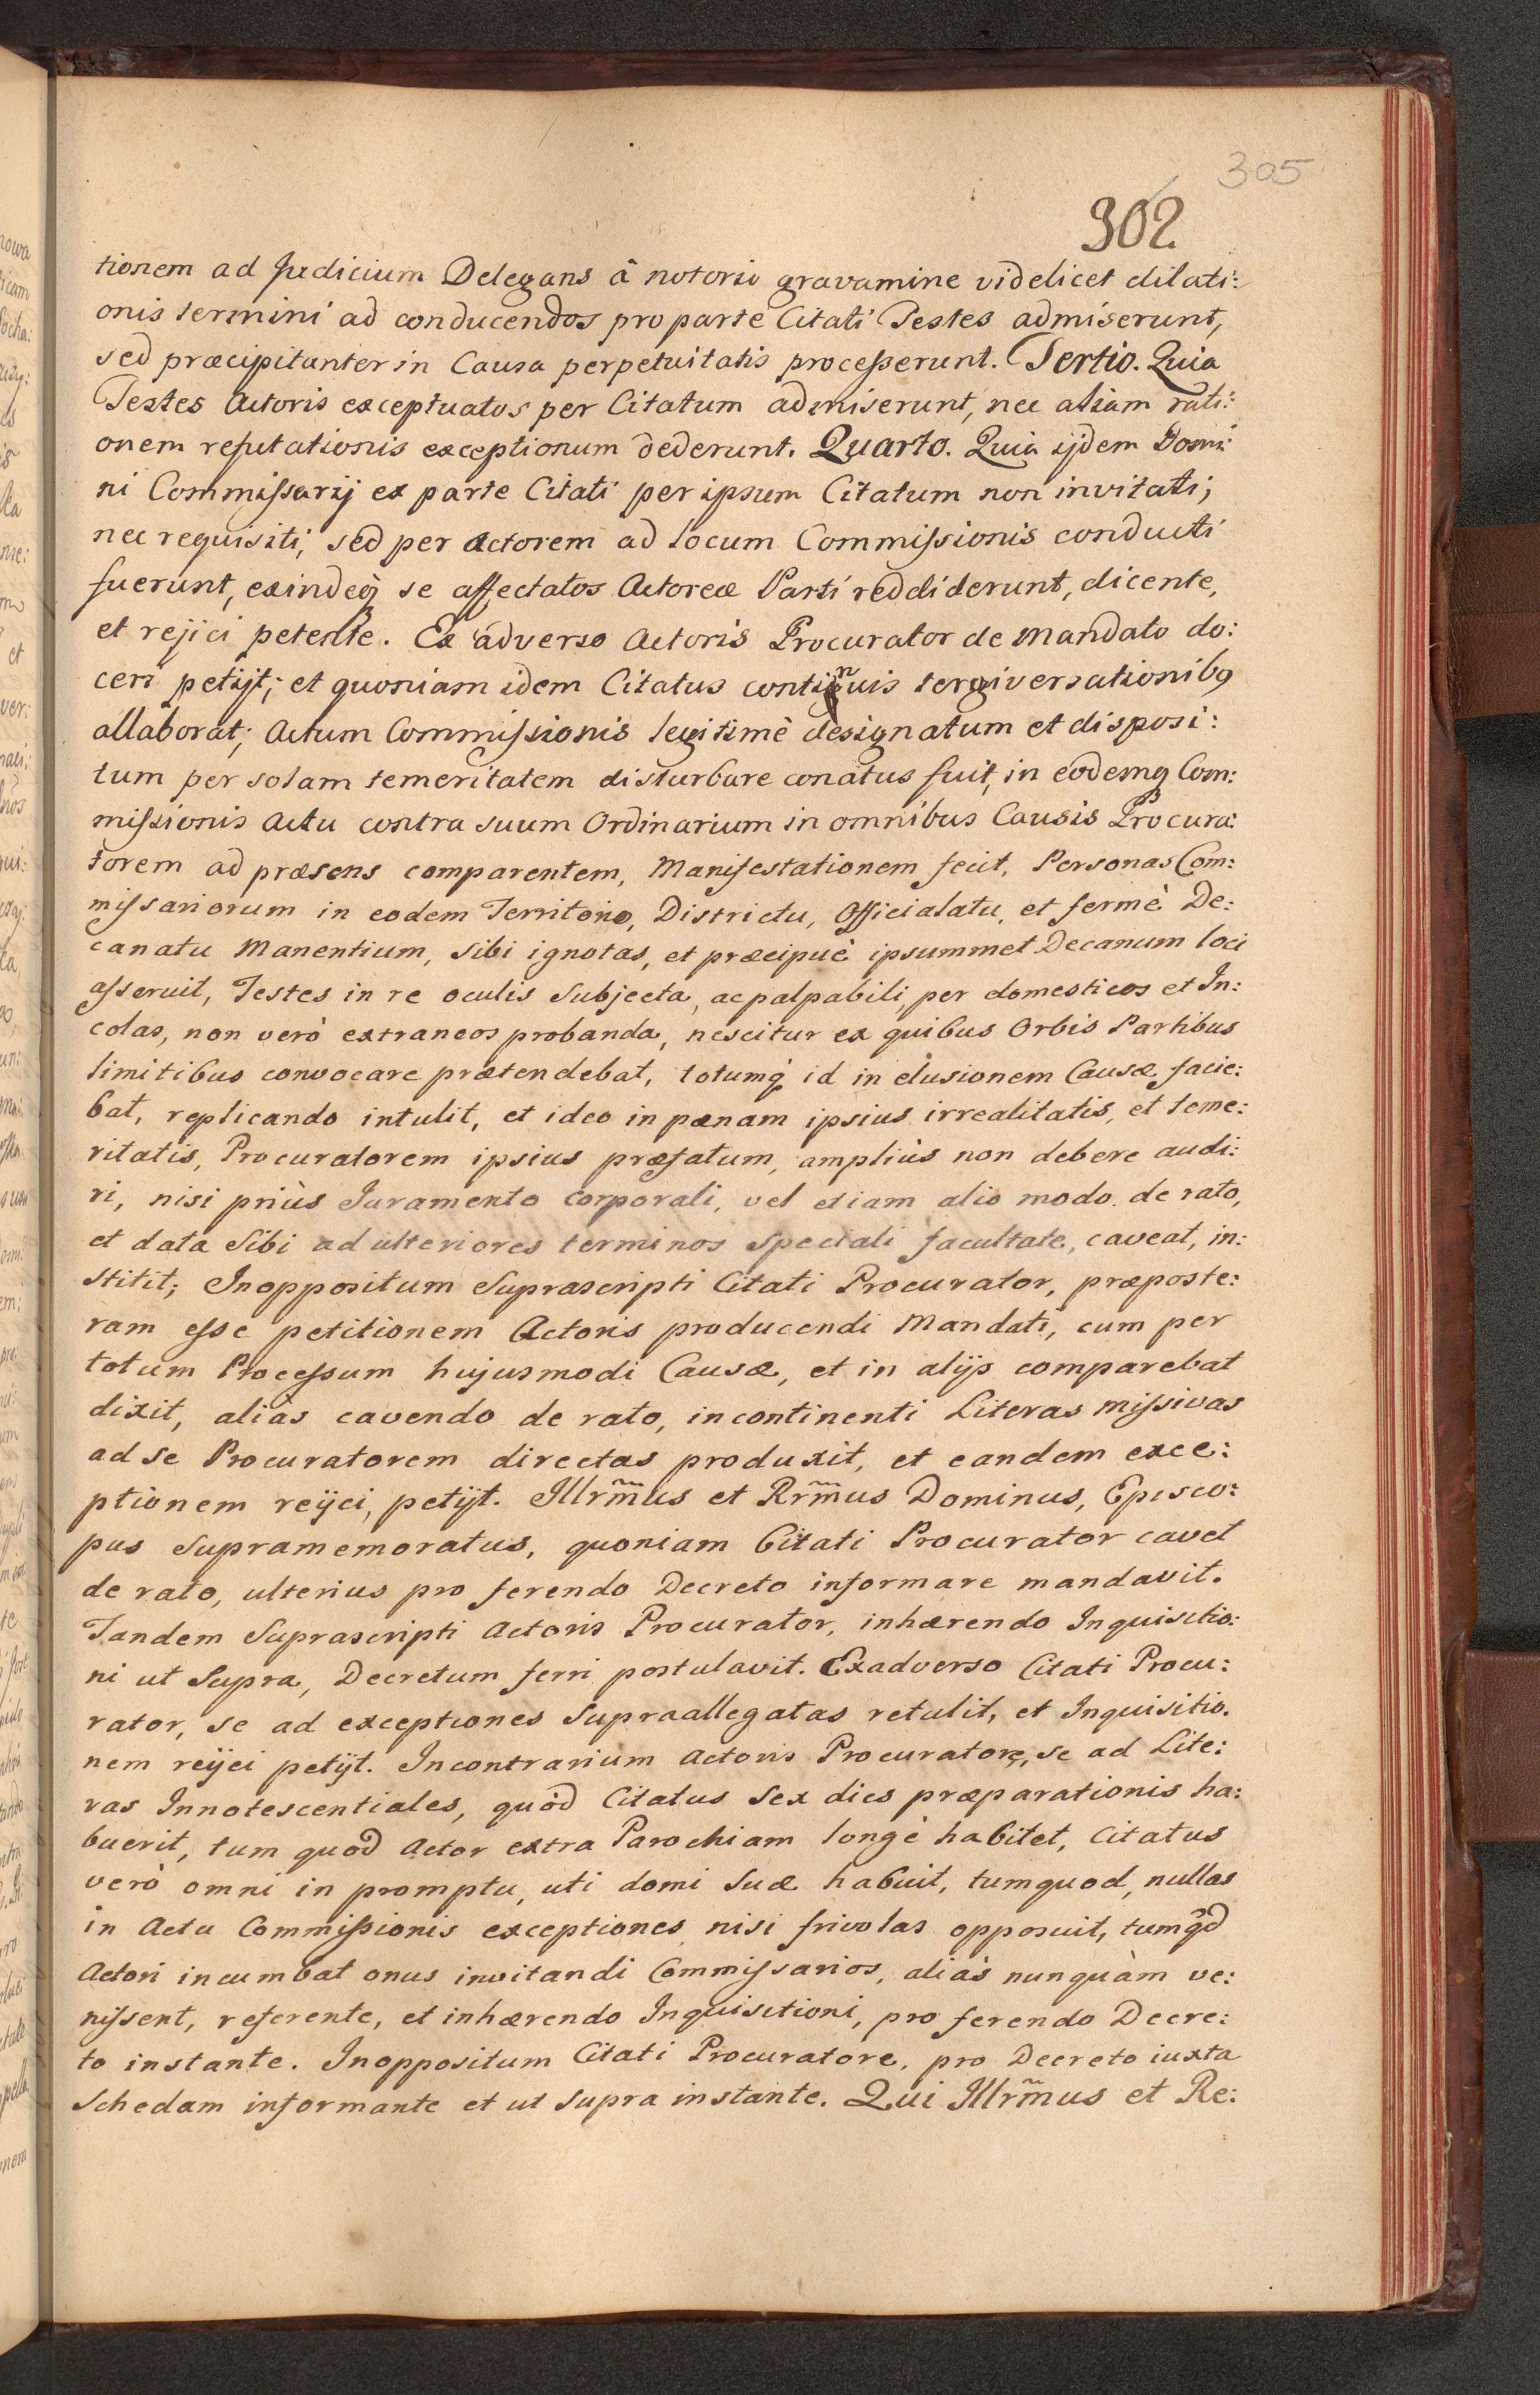 305
302
tionem ad Judicium Delegans â notorio gravamine videlicet dilati:
onis termini ad conducendos pro parte Citati Testes admiserunt,
sed præcipitanter in Causa perpetuitatis proceſserunt. Tertio. Quia
Testes Actoris exceptuatos per Citatum admiserunt, nec aliam rati:
onem refutationis exceptionum dederunt. Quarto. Quia ijdem Domi:
ni Commiſsarij ex parte Citati per ipsum Citatum non invitati,
nec requisiti, sed per Actorem ad locum Commiſsionis conducti
fuerunt, exindeq́ se affectatos Actoreæ Parti reddiderunt, dicente,
et rejici petente. Ex adverso Actoris Procurator de Mandato do:
ceri petijt; et quoniam idem Citatus continuis tergiversationibꝯ
allaborat; Actum Commiſsionis legitimè designatum et disposi:
tum per solam temeritatem disturbare conatus fuit, in eodemq́ Com:
miſsionis Actu contra suum Ordinarium in omnibus Causis Procura:
torem ad præsens comparentem, Manifestationem fecit, Personas Com:
miſsariorum in eodem Territorio, Districtu, Officialatu, et fermè De:
canatu Manentium, sibi ignotas, et præcipuè ipsummet Decanum loci
aſseruit, Testes in re oculis Subjecta, ac palpabili, per domesticos et In:
colas, non verò extraneos probanda, nescitur ex quibus Orbis Partibus
limitibus convocare prætendebat, totumq́ id in elusionem Causæ facie:
bat, replicando intulit, et ideo in pænam ipsius irrealitatis, et teme:
ritatis, Procuratorem ipsius præfatum, ampliùs non debere audi:
ri, nisi priùs Juramento corporali, vel etiam alio modo de rato,
et data Sibi ad ulteriores terminos Speciali facultate, caveat, in:
stitit; Inoppositum Suprascripti Citati Procurator, præposte:
ram eſse petitionem Actoris producendi Mandati, cum per
totum Proceſsum hujusmodi Causæ, et in alijs comparebat
dixit, aliàs cavendo de rato, incontinenti Literas miſsivas
ad se Procuratorem directas produxit, et eandem exce:
ptionem reijci, petijt. Illrm̃us et Rrm̃us Dominus, Episco:
pus Supramemoratus, quoniam Citati Procurator cavet
de rato, ulterius pro ferendo Decreto informare mandavit.
Tandem Suprascripti Actoris Procurator, inhærendo Inquisitio:
ni ut Supra, Decretum ferri postulavit. Exadverso Citati Procu:
rator, se ad exceptiones Supraallegatas retulit, et Inquisitio.
nem reijci petijt. Incontrarium Actoris Procuratore, se ad Lite:
ras Innotescentiales, quòd Citatus Sex dies præparationis ha:
buerit, tum quod Actor extra Parochiam longè habitet, Citatus
verò omni in promptu, uti domi Suæ habuit, tumquod, nullas
in Actu Commiſsionis exceptiones nisi frivolas opposuit, tumq̃d
Actori incumbat onus invitandi Commiſsarios, aliàs nunquàm ve:
niſsent, referente, et inhærendo Inquisitioni, pro ferendo Decre:
to instante. Inoppositum Citati Procuratore, pro Decreto iuxta
Schedam informante et ut Supra instante. Qui Illrm̃us et Re: